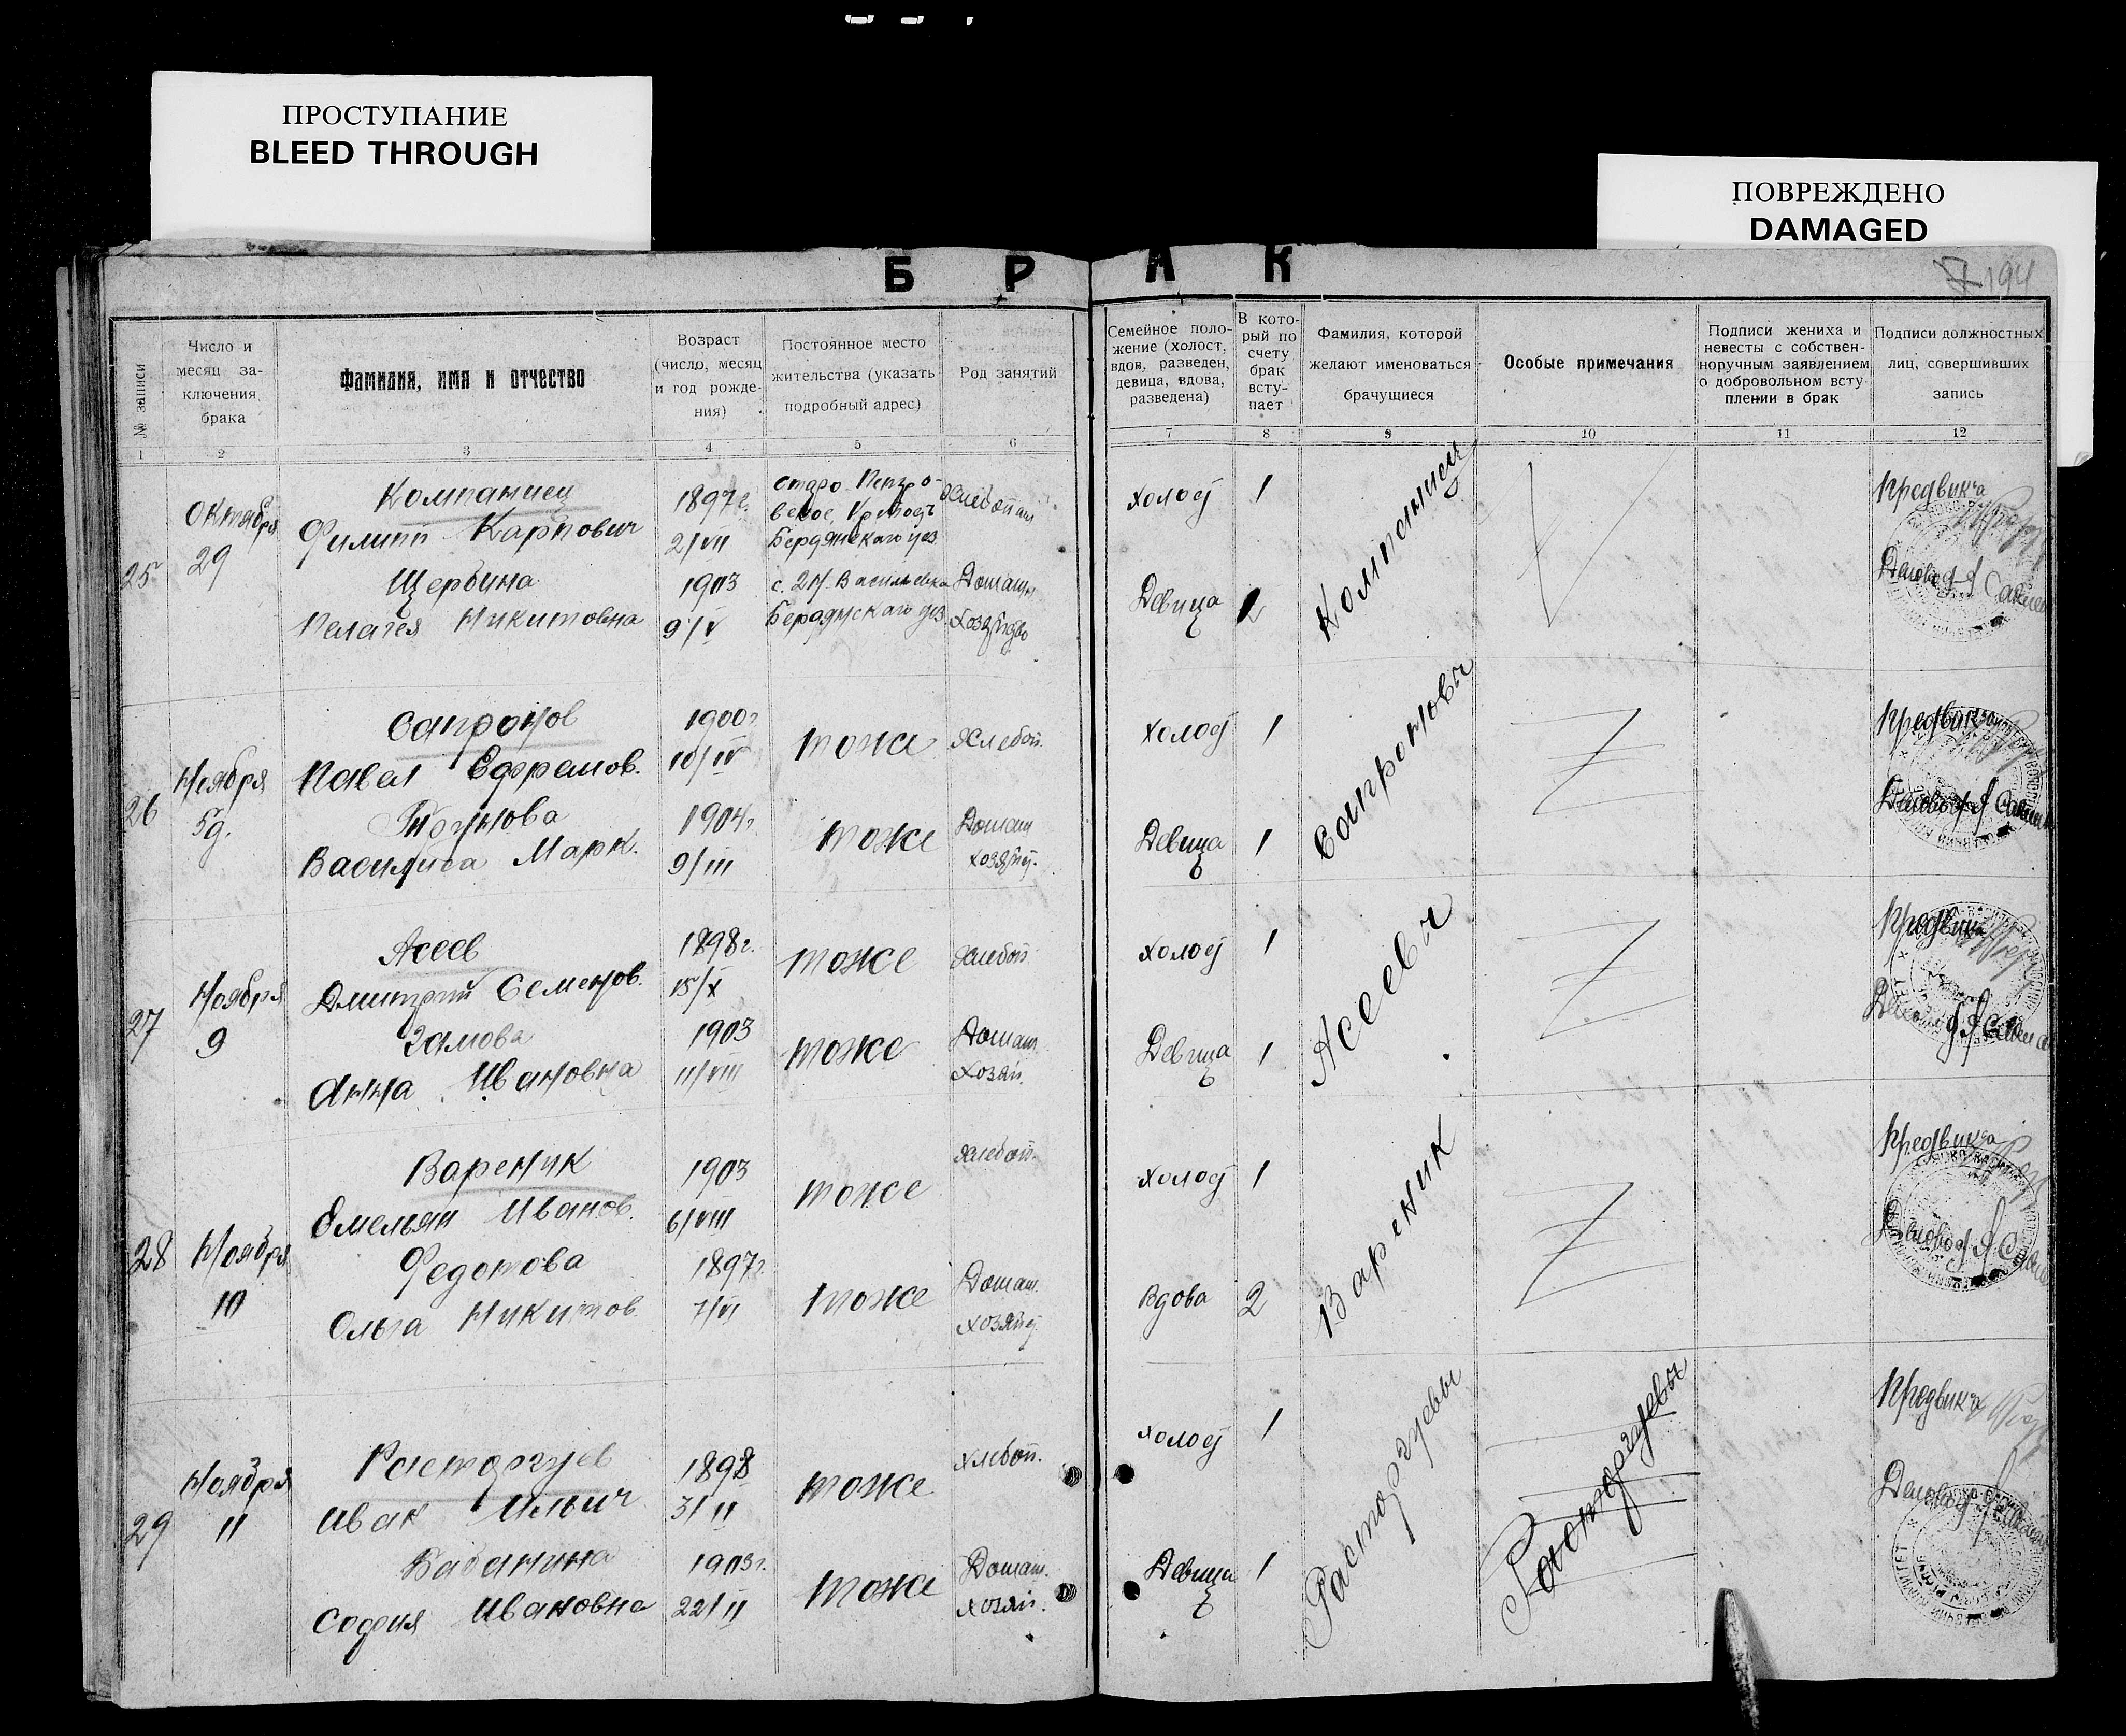 ПРОСТУПАНИЕ
BLEED THROUGH
ПОВРЕЖДЕНО
DAMAGED
Б Р А К
194
№ записи
Число и месяц за-
ключения
брака
Фамилия, имя и отчество
Возраст
(число, месяц
и год рожде-
ния)
Постоянное место
жительства (указать
подробный адрес)
Род занятий
Семейное поло-
жение (холост,
вдов, разведен,
девица, вдова,
разведена)
В кото-
рый по
счету
брак
всту-
пает
Фамилия, которой
желают именоваться
брачущиеся
Особые примечания
Подписи жениха и
невесты с собствен-
норучным заявлением
о добровольном всту-
плении в брак
Подписи должностных
лиц, совершивших
запись
1 2 3 4 5 6 7 8 9 10 11 12
25
Октября
29
Компаниец
Филипп Карпович
1897г.
2/VII
Бердянскаго уез.
Холост
1
Щербина
Пелагея Никитовна
1903
9/V
с. 2 Н. Васильевка
Бердянскаго уез.
Домашн.
Девица
Компаниец
Предвика
26
Ноября
5д.
Сапронов
Павел Ефремов.
1900г.
10/IV
тоже
Хлебоп.
Холост
1
Василиса Марк.
1904г.
9/III
тоже
Домаш
хозяйст.
Девица
1
Сапроновы
Предвика
27
Ноября
9
Асеев
Дмитрий Семенов.
1898г.
15/X
тоже
Хлебоп.
Холост
1
Анна Ивановна
1903
11/VIII
тоже
Домаш.
Хозяй.
Девица
1
Асеевы
Предвика
28
Ноября
10
Вареник
Емельян Иванов.
1903
6/VIII
тоже
Хлебоп.
Холост
1
Федотова
Ольга Никитов.
1897г.
7/VI
тоже
Домаш.
хозяйст
Вдова
2
Вареник
Предвика
29
Ноября
11
Расторгуев
Иван Ильич
1898
3/II
тоже
Хлебоп.
Холост
1
Бабанина
София Ивановна
1903г.
22/II
тоже
Домаш.
Хозяй.
Девица
1
Расторгуевы
Расторгуевы
Предвика